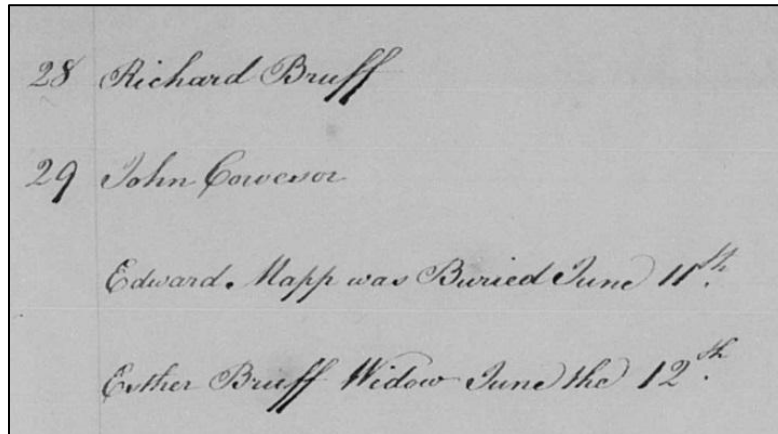 28 Richard Bruff
29 John
Edward Mapp was Buried June 11th.
Esther Bruff Widow June the 12th.